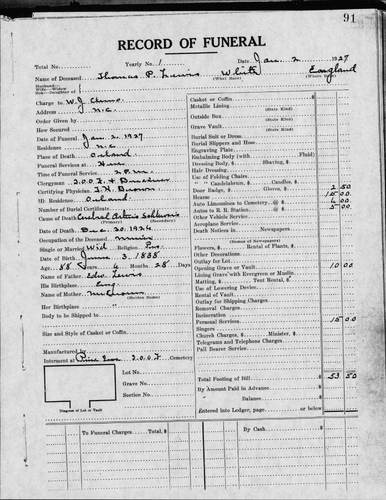 91
RECORD OF FUNERAL
Total No. Yearly No. 1 Date Jan. 2 1927
Name of Deceased Thomas P. Lewis White England
(What Race) (Where Born)
Husband—
Wife—Widow
Son—Daughter of
Charge to W. J.
Address N.C.
Order Given by
How Secured
Date of Funeral Jan 2, 1927
Residence N.C.
Place of Death
Funeral Services at
Time of Funeral Service 2 P.M.
Clergyman I.O.O.F. &
Certifying Physician J. H. Brown
His Residence
Number of Burial Certificate
Cause of Death Cerebral
(Primary) (Secondary)
Date of Death Dec. 30, 1926
Occupation of the Deceased Miner
Single or Married Wid Religion
Date of Birth June 3, 1838
Age 88 Years Months 28 Days
Name of Father Edw Lewis
His Birthplace Eng
Name of Mother
(Maiden Name)
Her Birthplace
Body to be Shipped to
Size and Style of Casket or Coffin
Manufactured by
Interment at Pine I.O.O.F. Cemetery
Lot No.
Grave No.
Section No.
Diagram of Lot or Vault
Casket or Coffin
Metallic Lining
(State Kind)
Outside Box
(State Kind)
Grave Vault
(State Kind)
Burial Suit or Dress
Burial Slippers and Hose
Engraving Plate
Embalming Body (with Fluid)
Dressing Body, $ Shaving, $
Hair Dressing
Use of Folding Chairs
" " Candelabrum, $ Candles, $
Door Badge, $ Gloves, $ 2 50
Hearse 15 00
Auto Limousines to Cemetery, @ $ 6 00
Autos to R. R. Station, @ $ 5 00
Other Vehicle Service
Aeroplane Service
Death Notices in Newspapers
(Names of Newspapers)
Flowers, $ Rental of Plants, $
Other Decorations
Outlay for Lot
Opening Grave or Vault 10 00
Lining Grave with Evergreen or Muslin
Matting, $ Tent Rental, $
Use of Lowering Device
Rental of Vault
Outlay for Shipping Charges
Removal Charges
Incineration
Personal Services 15 00
Singers
Church Charges, $ Minister, $
Telegrams and Telephone Charges
Pall Bearer Service
Total Footing of Bill $ 53 50
By Amount Paid in Advance $
Balance $
Entered into Ledger, page or below
To Funeral Charges Total, $
By Cash $